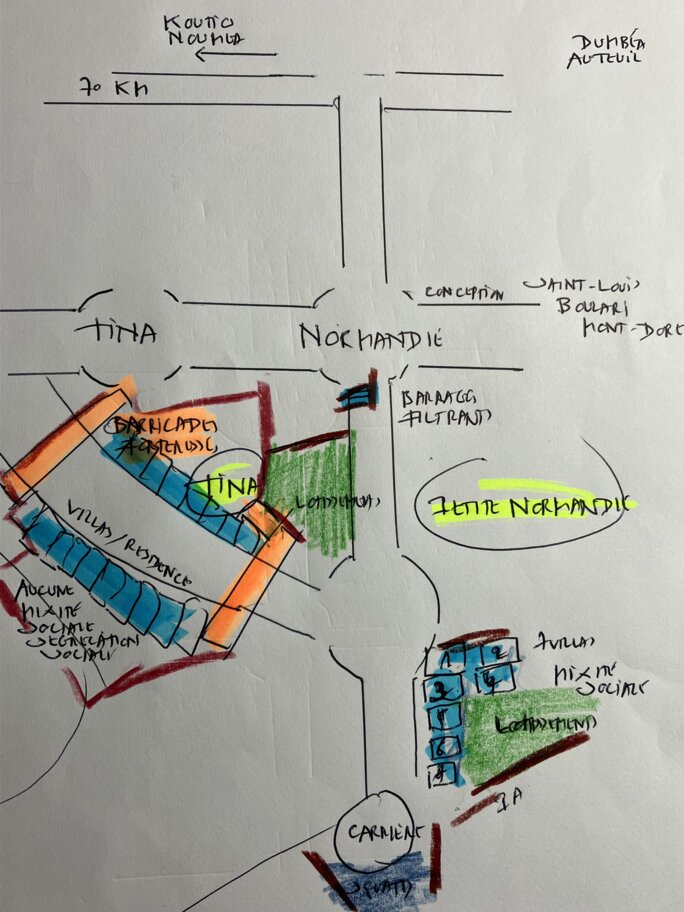 KOUTIO
NOUMEA
DUMBÉA
AUTEUIL
70 KM
CONCEPTION
SAINT-LOUIS
BOULARI
MONT-DORE
TINA
NORMANDIE
BARRAGES
FILTRANTS
BARRICADES
TINA
LOTISSEMENTS
PETITE NORMANDIE
VILLAS/RESIDENCE
AUCUNE
MIXITÉ
SOCIALE
SEGREGATION
SOCIALE
1 2
3 4
5
6
7
7 VILLAS
MIXITÉ
SOCIALE
LOTISSEMENTS
CARRIÈRE
SQUATS